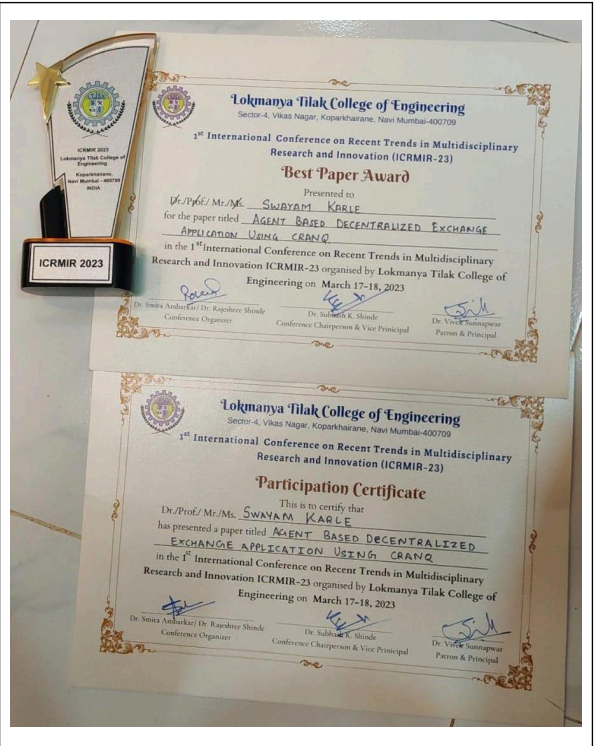 ICRMIR 2023
Lokmanya Tilak College of
Engineering
Koparkhairane,
Navi Mumbai - 400709
INDIA
ICRMIR 2023
Lokmanya Tilak College of Engineering
Sector-4, Vikas Nagar, Koparkhairane, Navi Mumbai-400709
1st International Conference on Recent Trends in Multidisciplinary
Research and Innovation (ICRMIR-23)
Best Paper Award
Presented to
Dr./Prof./ Mr./Ms. SWAYAM KARLE
for the paper titled AGENT BASED DECENTRALIZED EXCHANGE
APPLICATION USING CRANQ
in the 1st International Conference on Recent Trends in Multidisciplinary
Research and Innovation ICRMIR-23 organised by Lokmanya Tilak College of
Engineering on March 17-18, 2023
Dr. Smita Ambarkar/ Dr. Rajeshree Shinde
Conference Organizer
Dr. Subhash K. Shinde
Conference Chairperson & Vice Prinicipal
Dr. Vivek Sunnapwar
Patron & Principal
Lokmanya Tilak College of Engineering
Sector-4, Vikas Nagar, Koparkhairane, Navi Mumbai-400709
1st International Conference on Recent Trends in Multidisciplinary
Research and Innovation (ICRMIR-23)
Participation Certificate
This is to certify that
Dr./Prof./ Mr./Ms. SWAYAM KARLE
has presented a paper titled AGENT BASED DECENTRALIZED
EXCHANGE APPLICATION USING CRANQ
in the 1st International Conference on Recent Trends in Multidisciplinary
Research and Innovation ICRMIR-23 organised by Lokmanya Tilak College of
Engineering on March 17-18, 2023
Dr. Smita Ambarkar/ Dr. Rajeshree Shinde
Conference Organizer
Dr. Subhash K. Shinde
Conference Chairperson & Vice Prinicipal
Dr. Vivek Sunnapwar
Patron & Principal